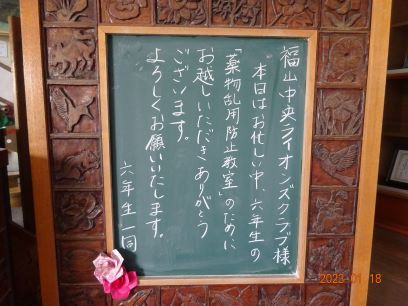 福山中央ライオンズクラブ様
本日はお忙しい中、六年生の
「薬物乱用防止教室」のために
お越しいただきありがとう
ございます。
よろしくお願いいたします。
六年生一同
2023-01-18